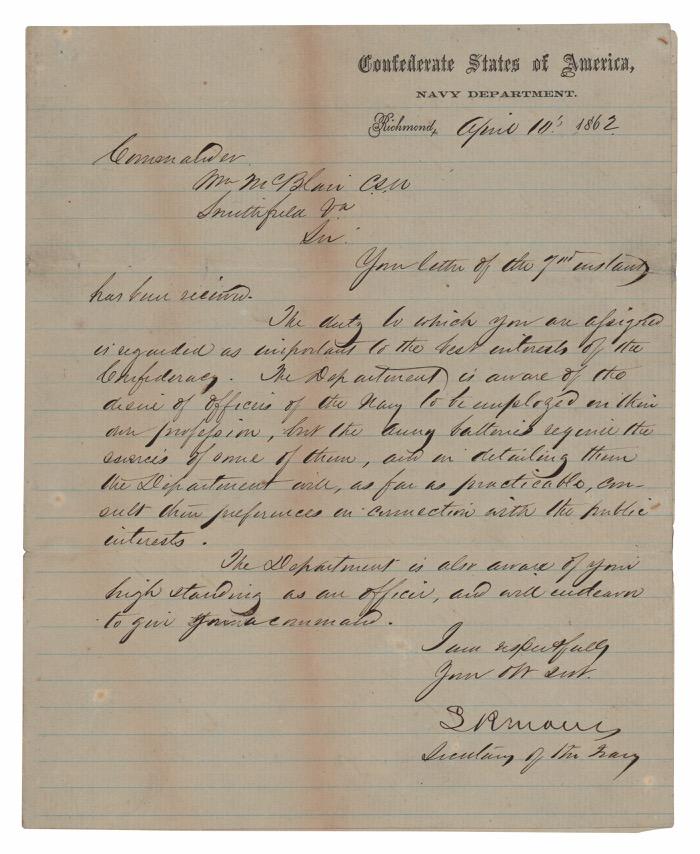 Confederate States of America,
NAVY DEPARTMENT.
Richmond, April 10th 1862
Commander
Wm McBlair CSN
Smithfield Va
Sir:
Your letter of the 7th instant
has been received.
The duty to which you are assigned
is regarded as important to the best interests of the
Confederacy. The Department is aware of the
desire of officers of the Navy to be employed in their
own profession, but the army batteries require the
services of some of them, and in detailing them
the Department will, as far as practicable, con-
sult their preferences in connection with the public
interests.
The Department is also aware of your
high standing as an officer, and will endeavor
to give you a command.
I am respectfully
Your Obt Servt.
S R Mallory
Secretary of the Navy